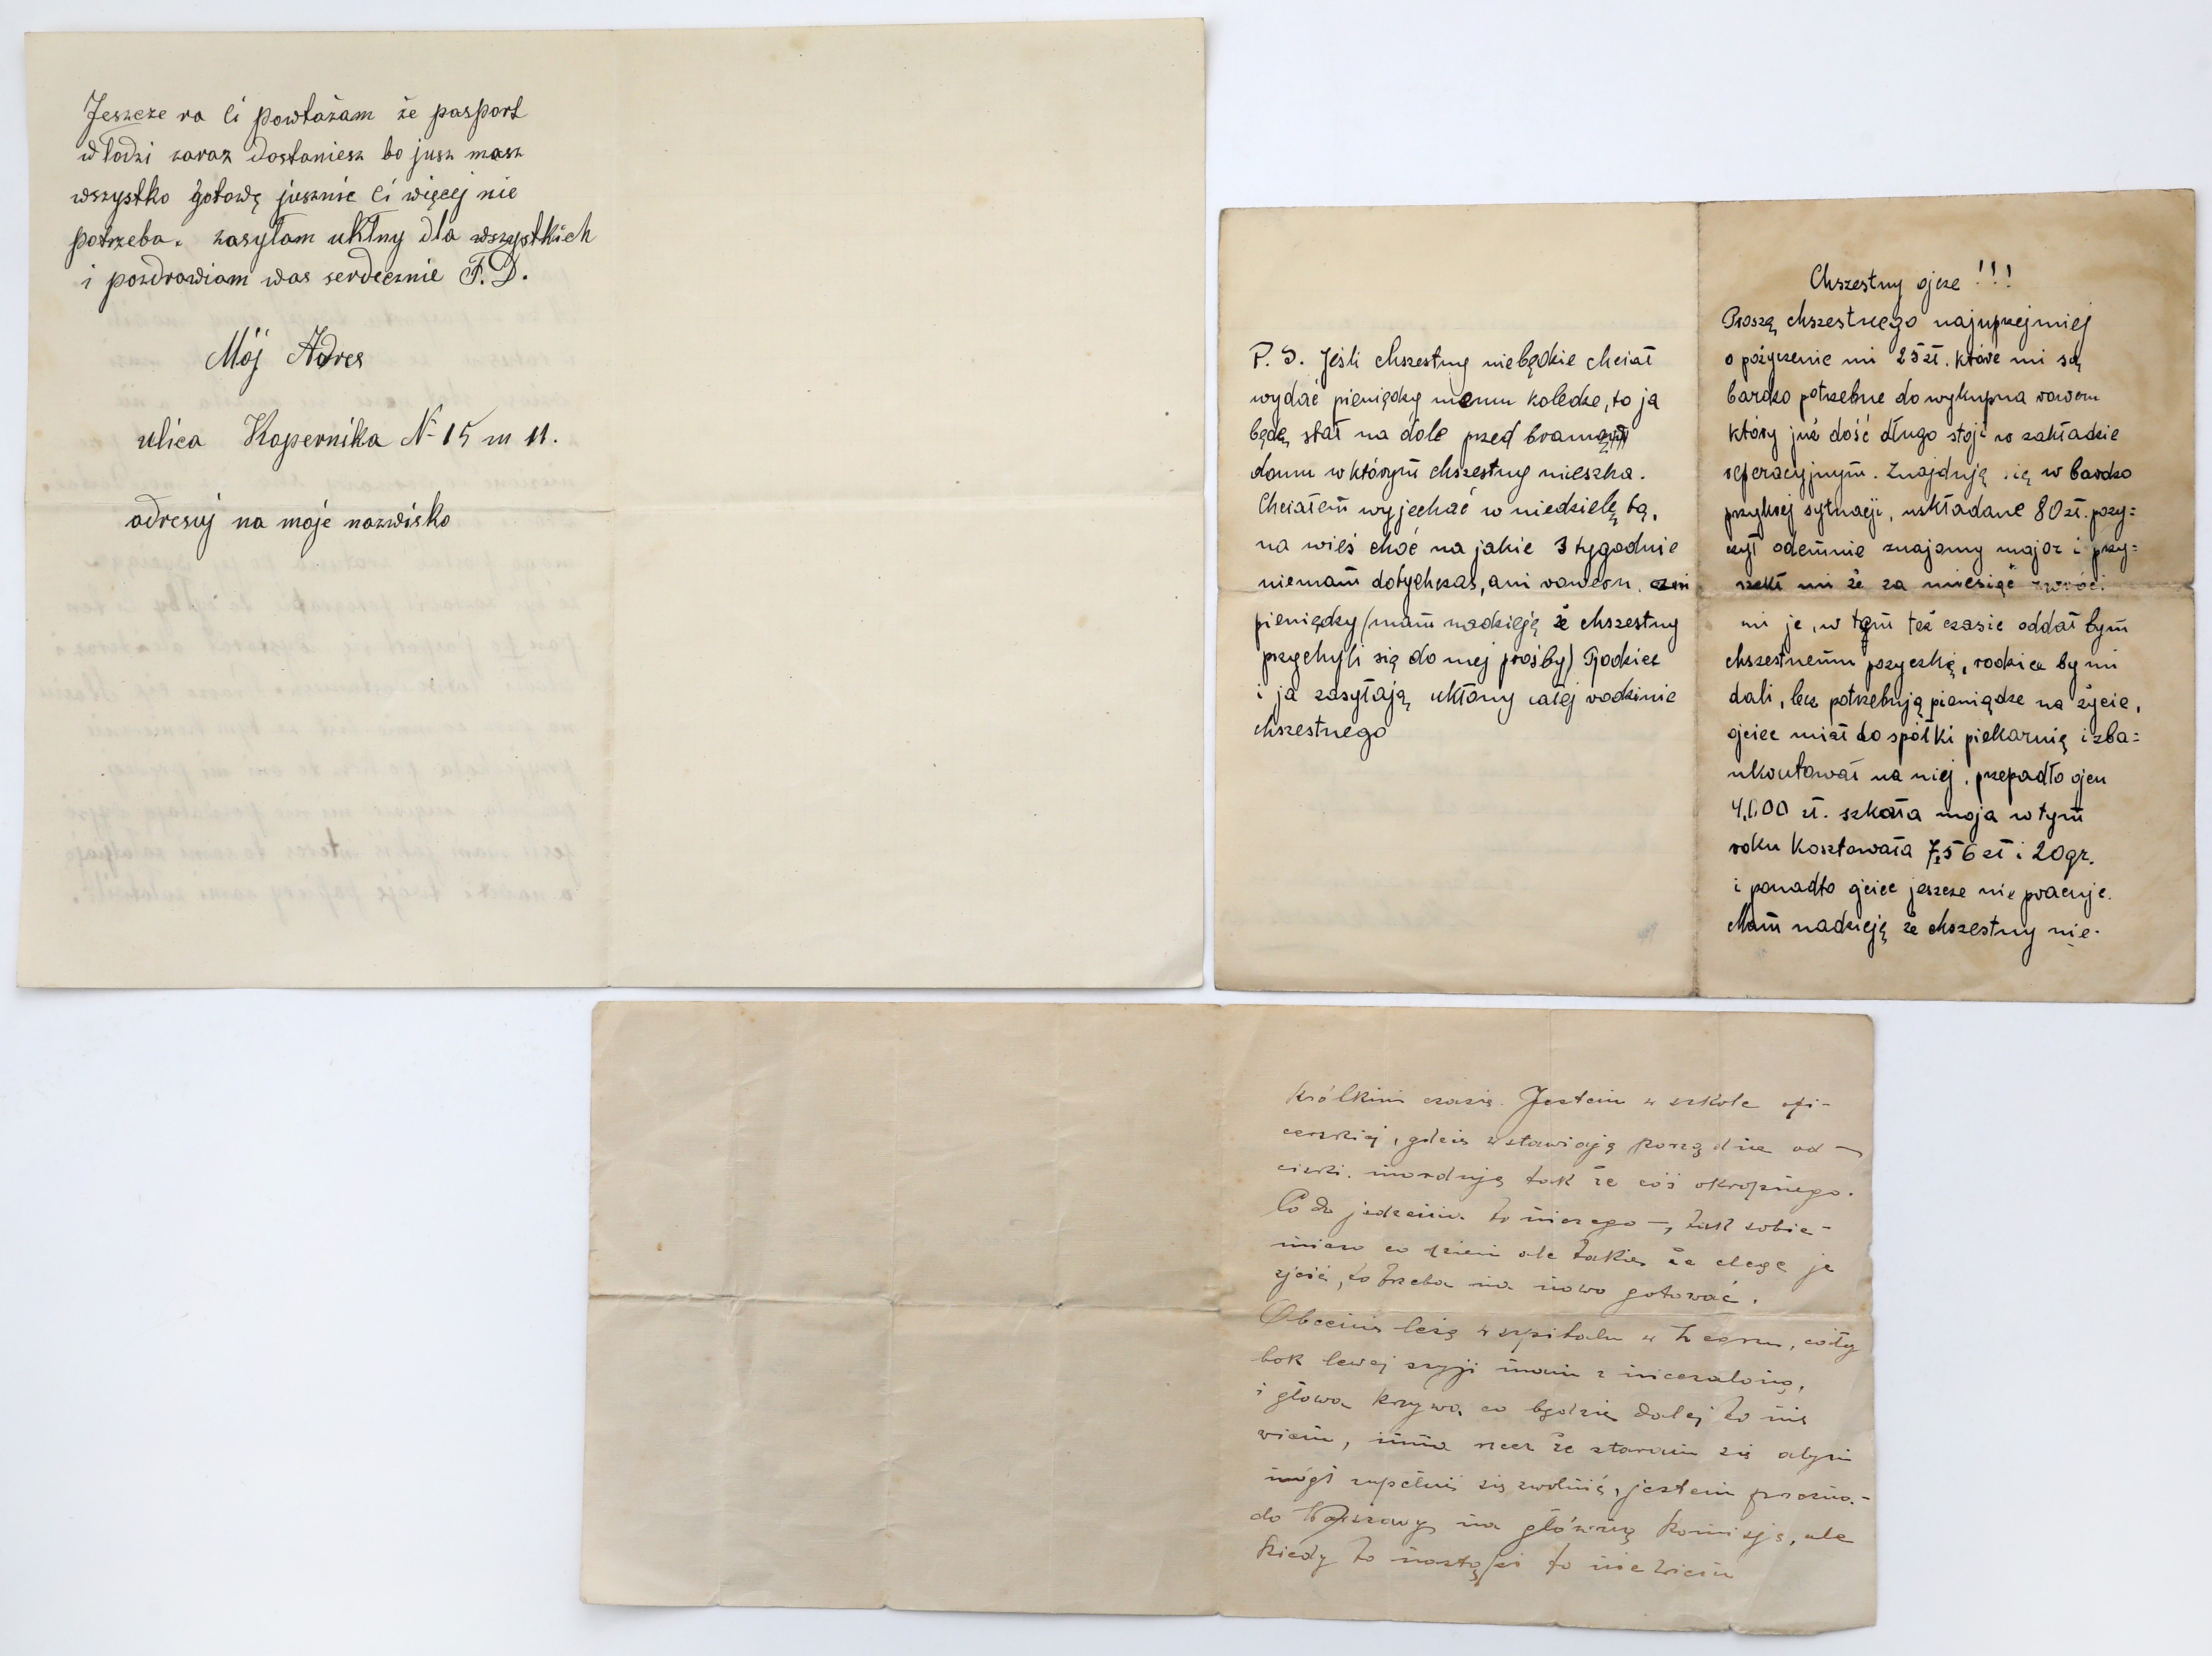 Jeszcze ra Ci powtażam że pasport
w łodzi zaraz dostaniesz bo jusz masz
wszystko gotowę jusznic Ci więcej nie
potrzeba. zasyłam ukłny dla wszystkich
i pozdrawiam was serdecznie F. D.
Mój Adres
ulica Kopernika № 15 m 11.
adresuj na moje nazwisko
P. S. Jeśli chszestny niebędzie chciał
wydać pieniędzy memu koledze, to ja
będę stał na dole przed bramą
domu w którym chszestny mieszka.
Chciałem wyjechać w niedzielę tą,
na wieś choć na jakie 3 tygodnie
niemam dotychczas, ani roweru,
pieniędzy (mam nadzieję że chszestny
przychyli się do mej prośby) Rodzice
i ja zasyłają ukłony całej rodzinie
chszestnego
Chszestny ojcze !!!
Proszę chszestnego najuprzejmiej
o pożyczenie mi 25 zł. które mi są
bardzo potrzebne do wykupna roweru
który już dość długo stoji w zakładzie
reperacyjnym. Znajduję się w bardzo
przykrej sytuacji, uskładane 80 zł. poży=
czył odemnie znajomy major i przy=
rzekł mi że za miesiąc zwróci
mi je, w tym też czasie oddał bym
chszestnemu pożyczkę, rodzice by mi
dali, lecz potrzebują pieniądze na życie,
ojciec miał do spółki piekarnię i zba=
nkrutował na niej, przepadło ojcu
zł. szkoła moja w tym
roku kosztowała 7,56 zł i 20 gr.
i ponadto ojciec jeszcze nie pracuje.
Mam nadzieję że chszestny nie-
krótkim czasie. Jestem w szkole ofi-
cerskiej, gdzie wstawiają porządne od-
ciski. mordują tak że coś okropnego.
Co do jedzenia to niczego -, tak sobie -
mięso co dzień ale takie że chcąc je
zjeść, to trzeba na nowo gotować.
Obecnie leżę w szpitalu w cały
bok lewej szyji mam
i głowa krzywa, co będzie dalej to nie
wiem, inna rzecz że staram się abym
mógł zupełnie się zwolnić, jestem
do Warszawy na główną komisję, ale
kiedy to nastąpi to nie wiem